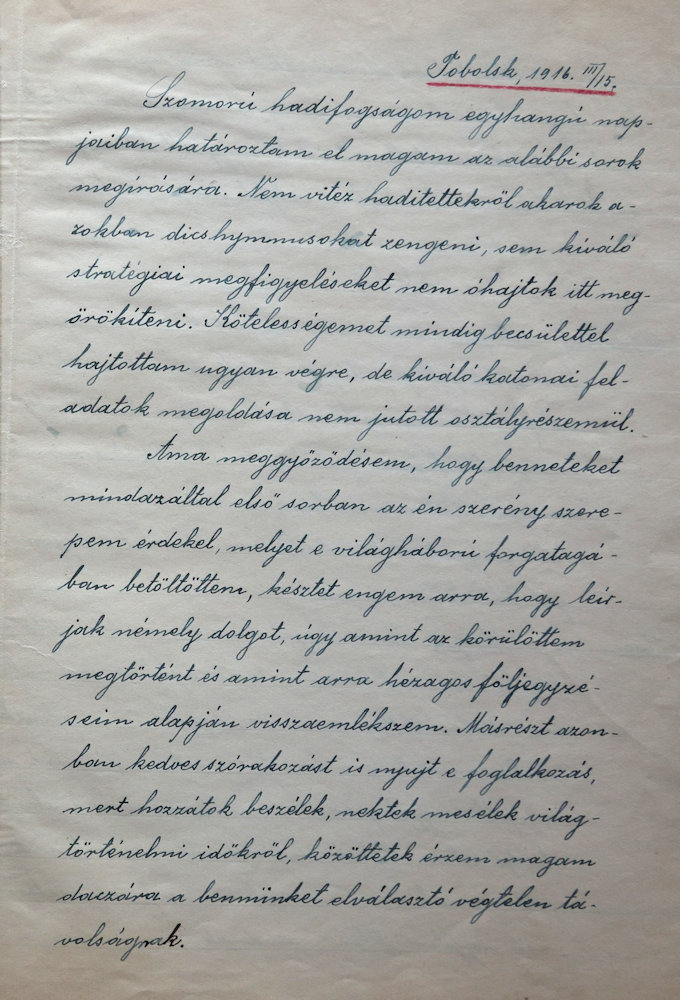 Tobolsk, 1916. III/15.
Szomorú hadifogságom egyhangú nap-
jaiban határoztam el magam az alábbi sorok
megirására. Nem vitéz haditettekről akarok a-
zokban dicshymnusokat zengeni, sem kiváló
stratégiai megfigyeléseket nem óhajtok itt meg-
örökíteni. Kötelességemet mindig becsülettel
hajtottam ugyan végre, de kiváló katonai fel-
adatok megoldása nem jutott osztályrészemül.
Ama meggyőződésem, hogy benneteket
mindazáltal első sorban az én szerény szere-
pem érdekel, melyet e világháború forgatagá-
ban betöltöttem, késztet engem arra, hogy leir-
jak némely dolgot, úgy amint az körülöttem
megtörtént és amint arra hézagos följegyzé-
seim alapján visszaemlékszem. Másrészt azon-
ban kedves szórakozást is nyujt e foglalkozás,
mert hozzátok beszélek, nektek mesélek világ-
történelmi időkről, közöttetek érzem magam
daczára a bennünket elválasztó végtelen tá-
volságnak.